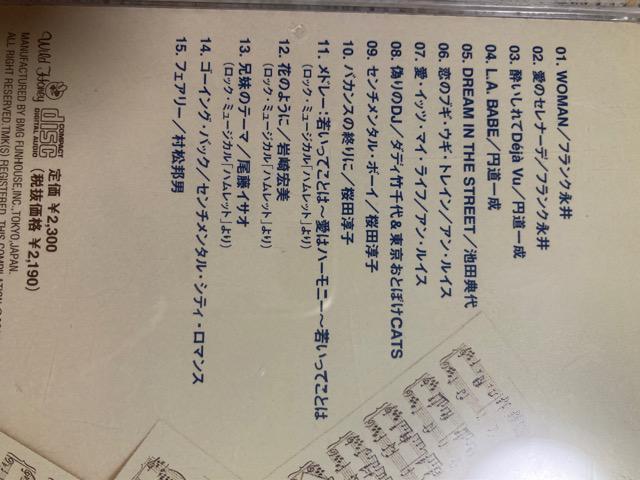 01. WOMAN／フランク永井
02. 愛のセレナーデ／フランク永井
03. 酔いしれてDéjà Vu／円道一成
04. L.A. BABE／円道一成
05. DREAM IN THE STREET／池田典代
06. 恋のブギ・ウギ・トレイン／アン・ルイス
07. 愛・イッツ・マイ・ライフ／アン・ルイス
08. 偽りのDJ／ダディ竹千代&東京おとぼけCATS
09. センチメンタル・ボーイ／桜田淳子
10. バカンスの終りに／桜田淳子
11. メドレー：若いってことは〜愛はハーモニー〜若いってことは
（ロック・ミュージカル「ハムレット」より）
12. 花のように／岩崎宏美
（ロック・ミュージカル「ハムレット」より）
13. 兄妹のテーマ／尾藤イサオ
（ロック・ミュージカル「ハムレット」より）
14. ゴーイング・バック／センチメンタル・シティ・ロマンス
15. フェアリー／村松邦男
Wild Honey
COMPACT
disc
DIGITAL AUDIO
定価 ¥2,300
（税抜価格 ¥2,190）
MANUFACTURED BY BMG FUNHOUSE, INC., TOKYO, JAPAN.
ALL RIGHT RESERVED. TMK(S) REGISTERED. THIS COMPILATION